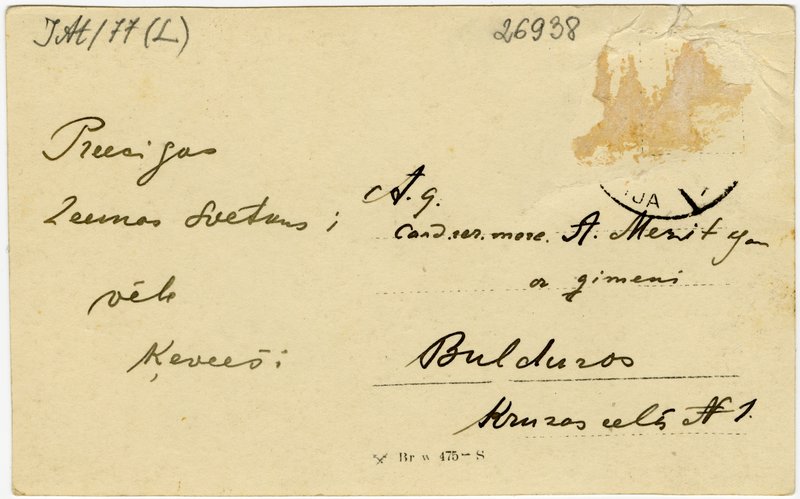 JAt/77(L)
26938
Precigas
Zeemas svētkus
vēle
Ķeveeši
JA
A. g.
Cand. rer. merc. A.
ar ģimeni
Bulduros
Kruzas ielā № 1.
Br w 475 - S